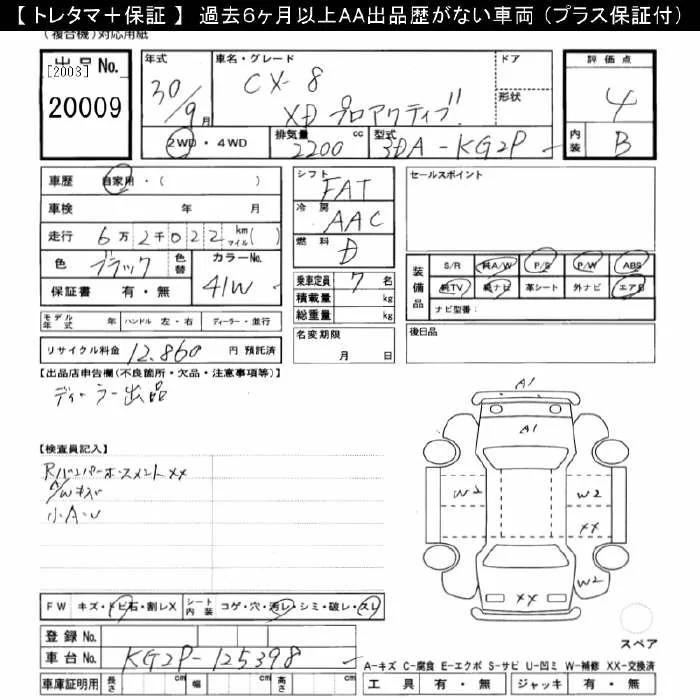 【 トレタマ＋保証 】 過去６ヶ月以上AA出品歴がない車両（プラス保証付）
(複合機)対応用紙
出品No.
[2003]
20009
年式
30/9月
車名・グレード
CX-8
XD プロアクティブ
ドア
形状
2WD・4WD
排気量
2200cc
型式
3DA-KG2P
評価点
4
内装
B
車歴 自家用・( )
車検 年 月
走行 6万2千022km マイル( )
色 ブラック 色替 カラーNo.
41W
保証書 有・無
モデル年式 年 ハンドル 左・右 ディーラー・並行
リサイクル料金 12,860 円 預託済
シフト FAT
冷房 AAC
燃料 D
乗車定員 7 名
積載量 kg
総重量 kg
名変期限
月 日
セールスポイント
装備品
S/R 純A/W P/S P/W ABS
純TV 純ナビ 革シート 外ナビ エアB
ナビ型番:
後日品
【出品店申告欄(不良箇所・欠品・注意事項等)】
ディーラー出品
【検査員記入】
A/Wキズ
小A・U
A1
A1
W2 W2
XX
W2
XX
スペア
FW キズ・トビ石・割レX シート内装 コゲ・穴・汚レ・シミ・破レ・スレ
登録No.
車台No. KG2P-125398
車庫証明用 長さ cm 幅 cm 高さ cm
A-キズ C-腐食 E-エクボ S-サビ U-凹ミ W-補修 XX-交換済
工具 有・無 ジャッキ 有・無